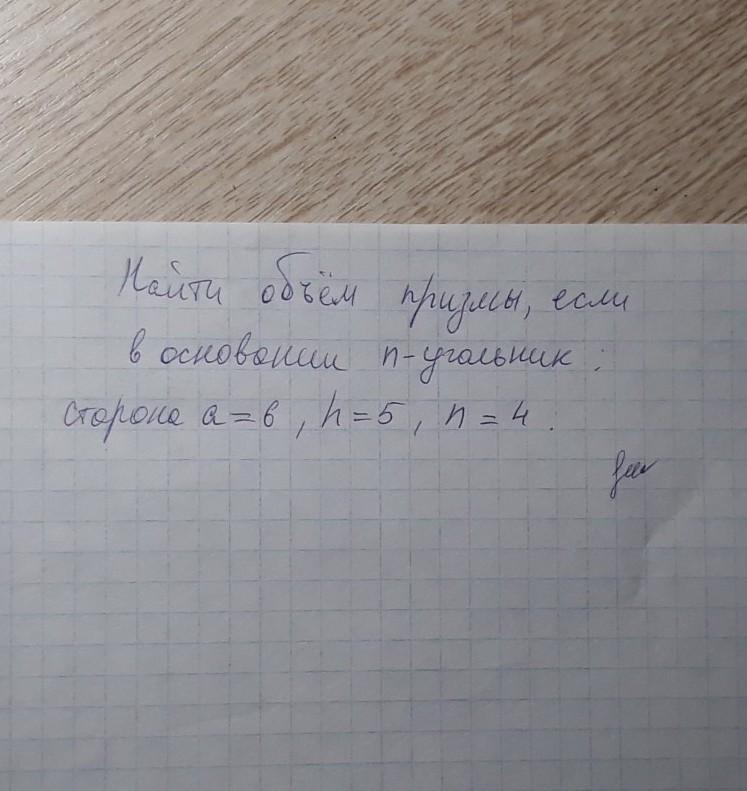 Найти объём призмы, если
в основании n-угольник:
сторона a=6, h=5, n=4.